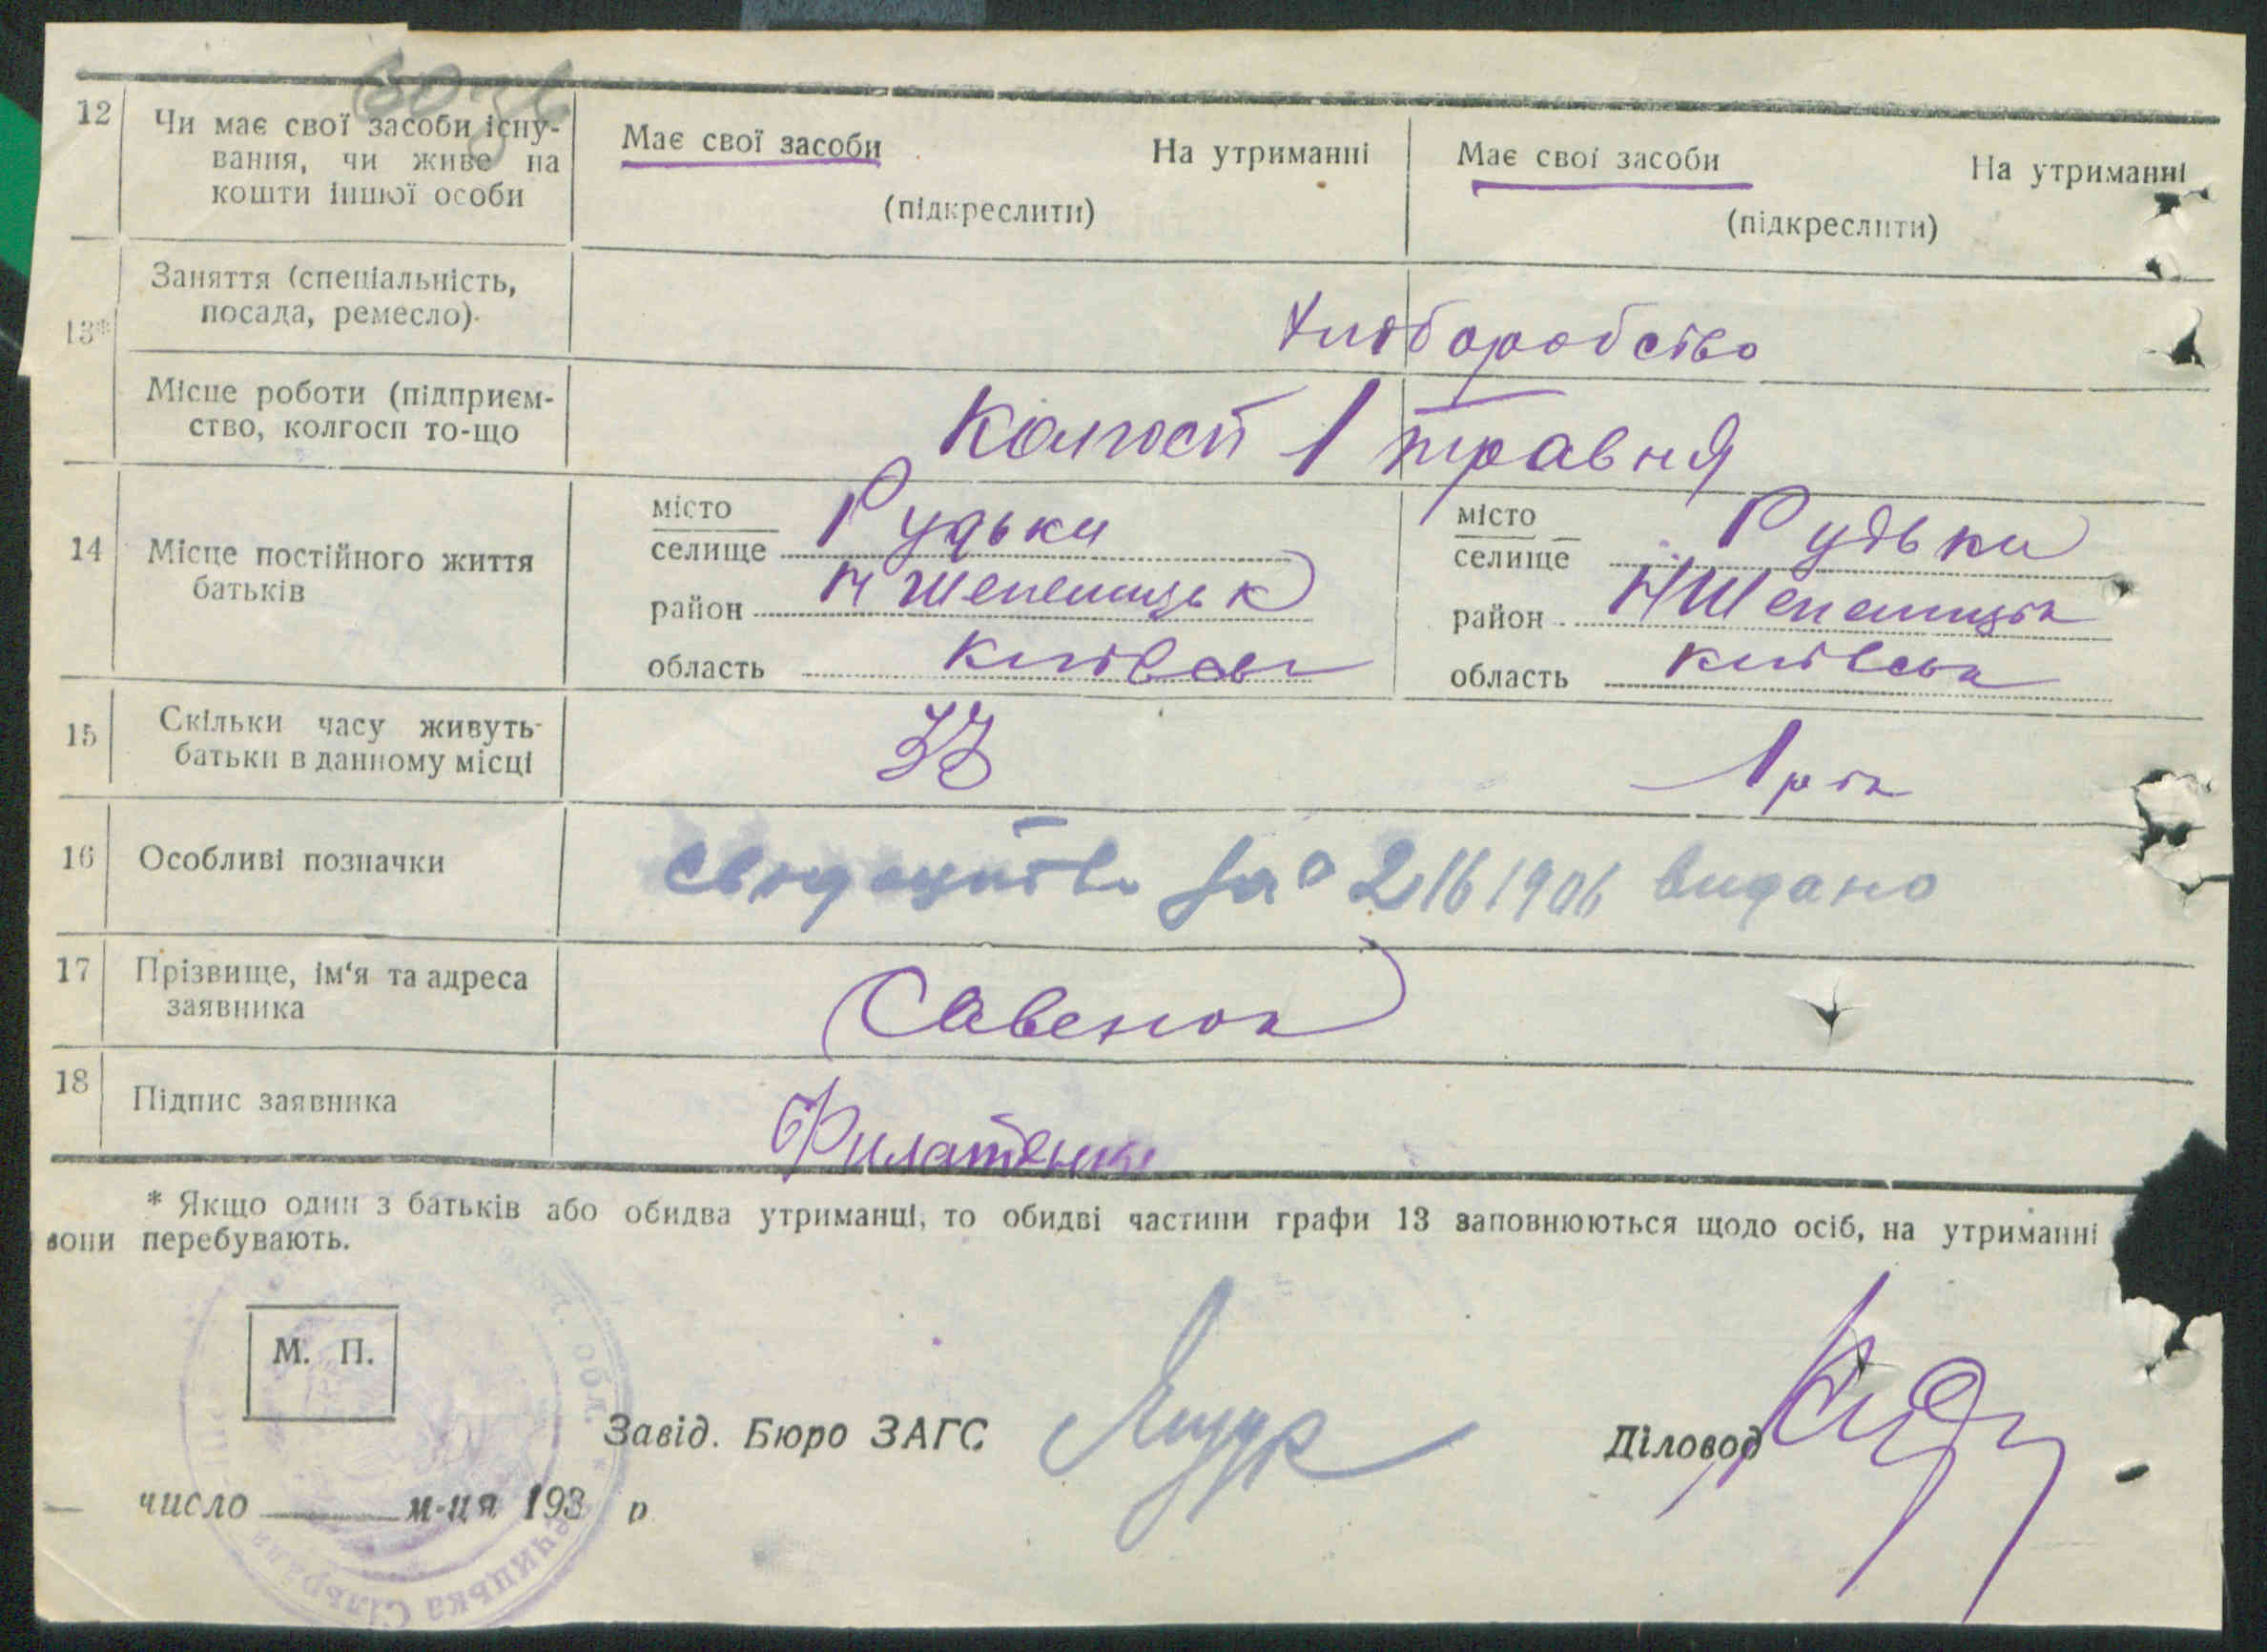 12
Чи має свої засоби існу-
вання, чи живе на
кошти іншої особи
Має свої засоби На утриманні
(підкреслити)
Має свої засоби На утриманні
(підкреслити)
13*
Заняття (спеціальність,
посада, ремесло).
хліборобство
Місце роботи (підприєм-
ство, колгосп то-що
Колгосп 1 травня
14
Місце постійного життя
батьків
місто
селище Рудьки
район НШепелицьк
область Київськ
місто
селище Рудьки
район НШепелицьк
область Київськ
15
Скільки часу живуть
батьки в данному місці
33
1 рік
16
Особливі позначки
свидоцтво за 2161906 видано
17
Прізвище, ім'я та адреса
заявника
Савенок
18
Підпис заявника
* Якщо один з батьків або обидва утриманці, то обидві частини графи 13 заповнюються щодо осіб, на утриманні
вони перебувають.
М. П.
Завід. Бюро ЗАГС
Діловод
число м-ця 193 р
обл.
ечицька Сільрада